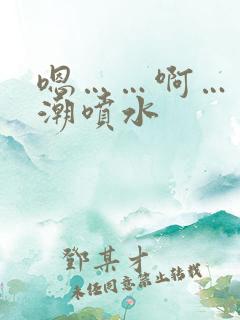 嗯……啊…
潮噴水
鄧某才
未经同意禁止转载